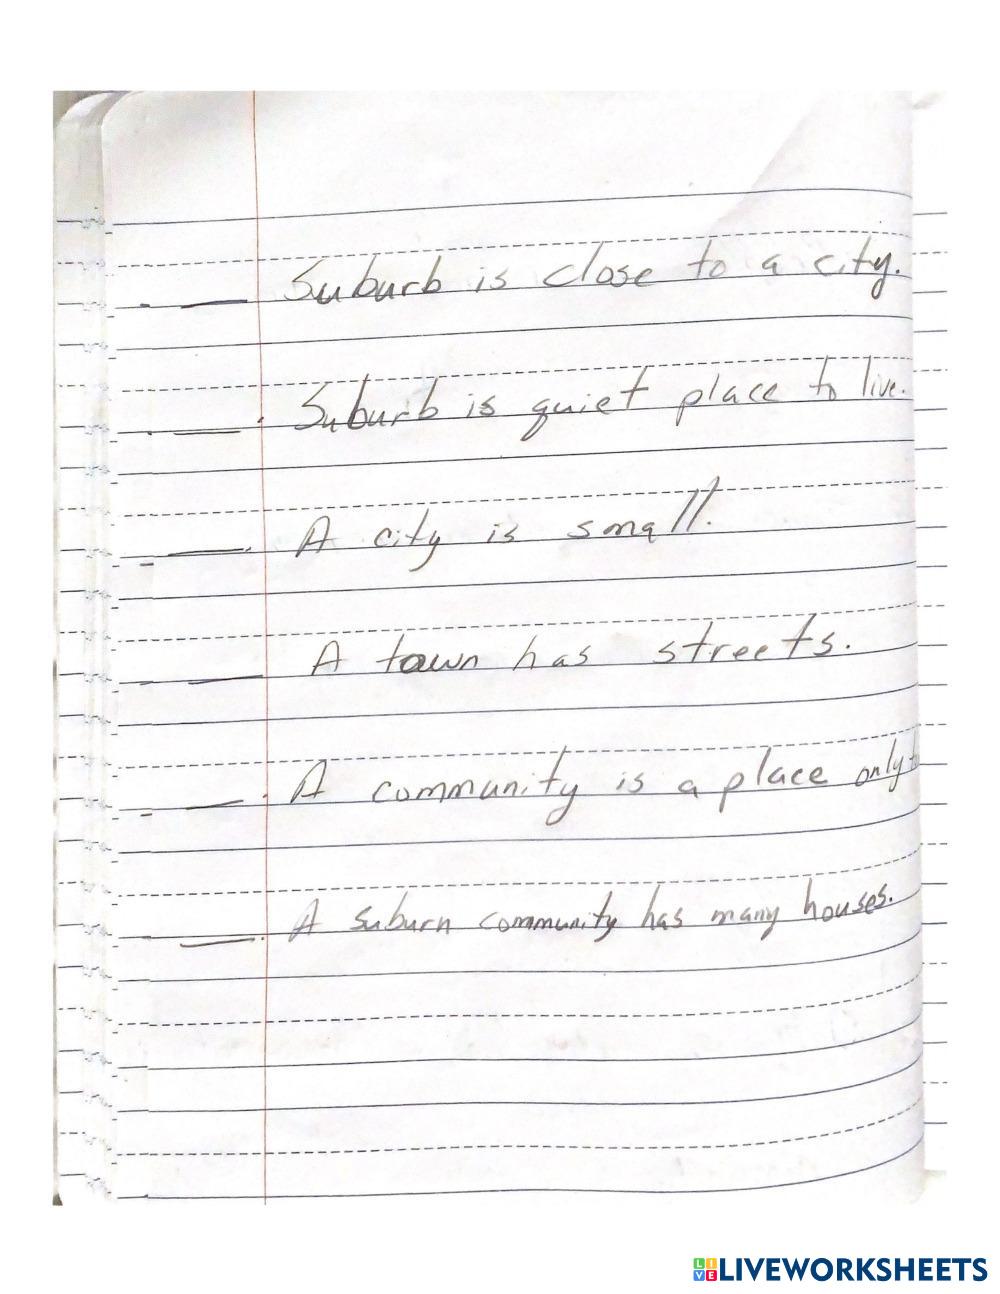 Suburb is close to a city.
Suburb is quiet place to live.
A city is small.
A town has streets.
A community is a place only
A suburn community has many houses.
LIVEWORKSHEETS